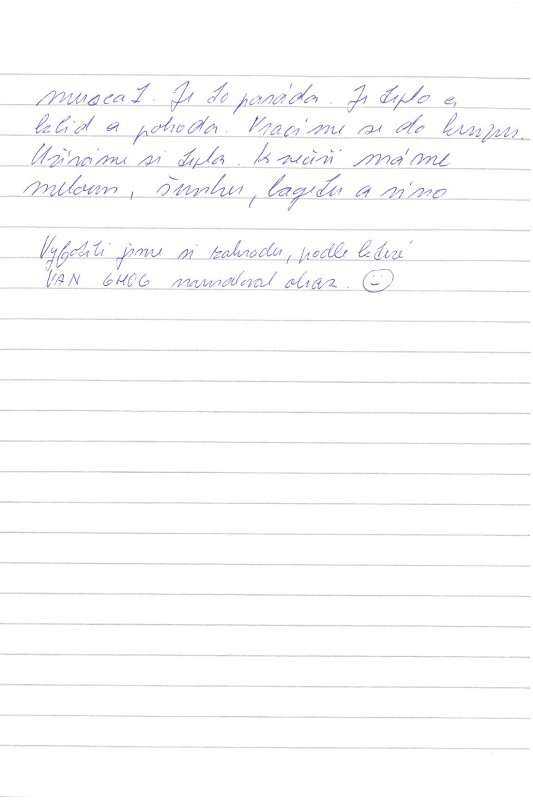 Je to paráda. Je teplo a
klid a pohoda. Vracíme se do kempu.
Užíváme si tepla. K večeři máme
meloun, šunku, bagetu a víno
Vyfotili jsme si zahradu, podle které
VAN GHOG namaloval obraz. ☺